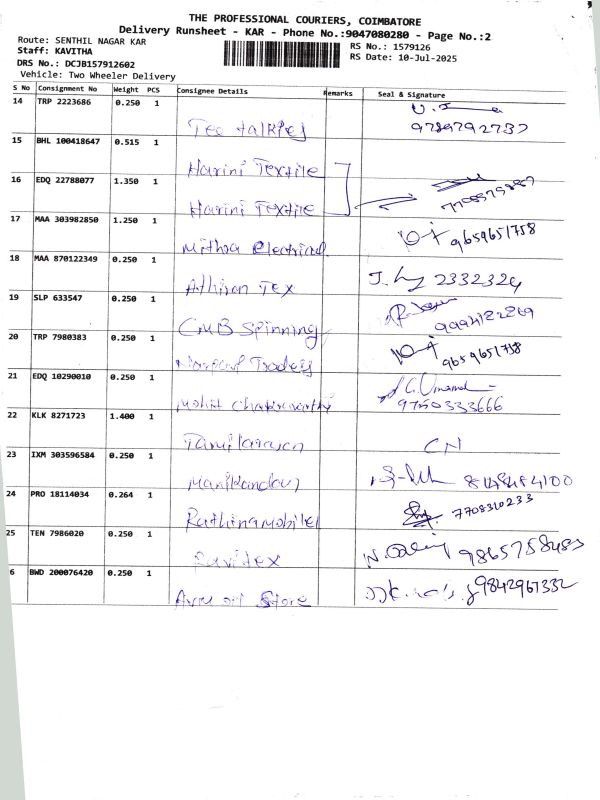 THE PROFESSIONAL COURIERS, COIMBATORE
Delivery Runsheet - KAR - Phone No.:9047080280 - Page No.:2
Route: SENTHIL NAGAR KAR
Staff: KAVITHA
DRS No.: DCJB157912602
Vehicle: Two Wheeler Delivery
RS No.: 1579126
RS Date: 10-Jul-2025
S No Consignment No Weight PCS Consignee Details Remarks Seal & Signature
14 TRP 2223686 0.250 1
Tee talkies 9789792737
15 BHL 100418647 0.515 1
Harini Textile
16 EDQ 22788077 1.350 1
Harini Textile
17 MAA 303982850 1.250 1
Mithra Electrical 9659651758
18 MAA 870122349 0.250 1
Athiran Tex 2332324
19 SLP 633547 0.250 1
CMB Spinning
20 TRP 7980383 0.250 1
Traders 9659651758
21 EDQ 10290010 0.250 1
Mohit Chakravarthi 9750333666
22 KLK 8271723 1.400 1
CN
23 IXM 303596584 0.250 1
Manikandan
24 PRO 18114034 0.264 1
Rathinamobile 7708310233
25 TEN 7986020 0.250 1
Ravitex
6 BWD 200076420 0.250 1
Store 9842967332